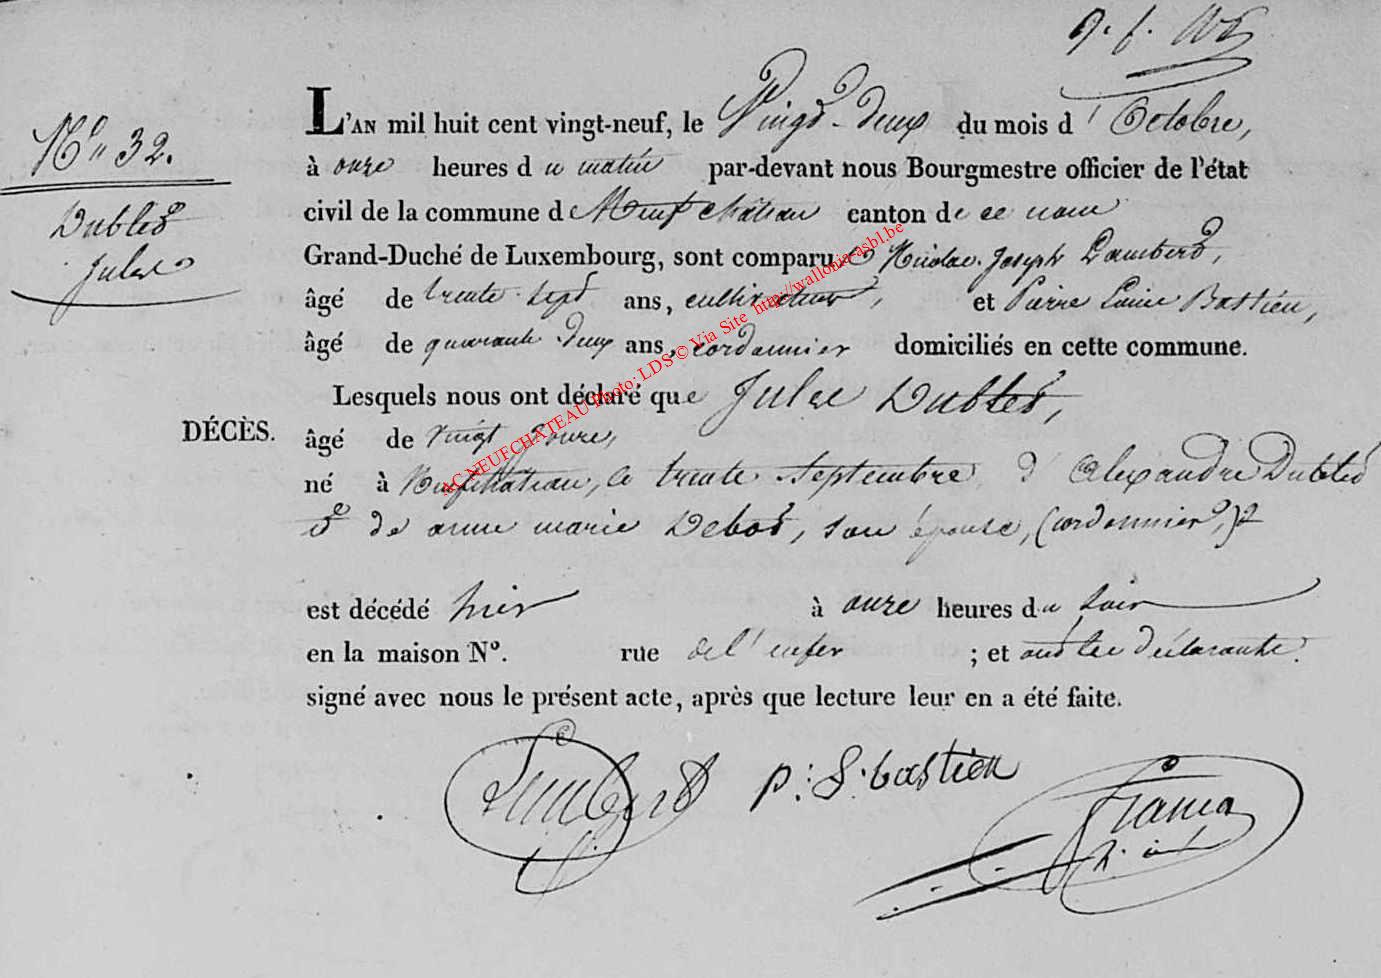 N° 32.
Dubled
Jules
L'AN mil huit cent vingt-neuf, le Vingt-deux du mois d'Octobre,
à onze heures du matin par-devant nous Bourgmestre officier de l'état
civil de la commune de Neufchâteau canton de ce nom
Grand-Duché de Luxembourg, sont comparus Nicolas Joseph Lambert,
âgé de trente-sept ans, cultivateur, et Pierre Louis Bastien,
âgé de quarante deux ans, cordonnier domiciliés en cette commune.
Lesquels nous ont déclaré que Jules Dubled,
DÉCÈS. âgé de vingt jours,
né à Neufchâteau, le trente septembre d'Alexandre Dubled
et de anne marie Debot, son épouse, (cordonnier,)
est décédé hier à onze heures du soir
en la maison N°. rue de l'enfer ; et ont les déclarants
signé avec nous le présent acte, après que lecture leur en a été faite.
Lambert P: L. bastien
AC NEUFCHATEAU Photo: LDS © Via Site http://wallonia-asbl.be